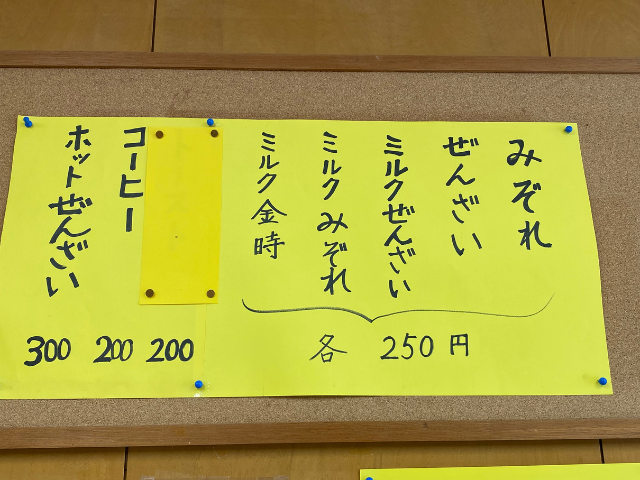 みぞれ
ぜんざい
ミルクぜんざい
ミルクみぞれ
ミルク金時
各 250円
200
コーヒー
200
ホットぜんざい
300